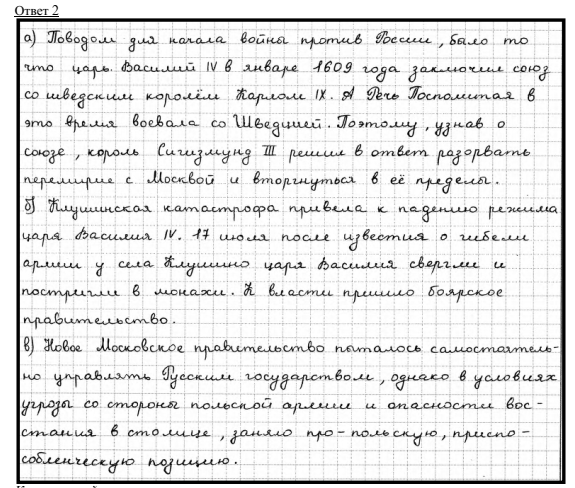 Ответ 2
а) Поводом для начала войны против России, было то
что царь Василий IV в январе 1609 года заключил союз
со шведским королём Карлом IX. А Речь Посполитая в
это время воевала со Швецией. Поэтому, узнав о
союзе, король Сигизмунд III решил в ответ разорвать
перемирие с Москвой и вторгнуться в её пределы.
б) Клушинская катастрофа привела к падению режима
царя Василия IV. 17 июля после известия о гибели
армии у села Клушино царя Василия свергли и
постригли в монахи. К власти пришло боярское
правительство.
в) Новое Московское правительство пыталось самостоятель-
но управлять Русским государством, однако в условиях
угрозы со стороны польской армии и опасности вос-
стания в столице, заняло про-польскую, приспо-
собленческую позицию.